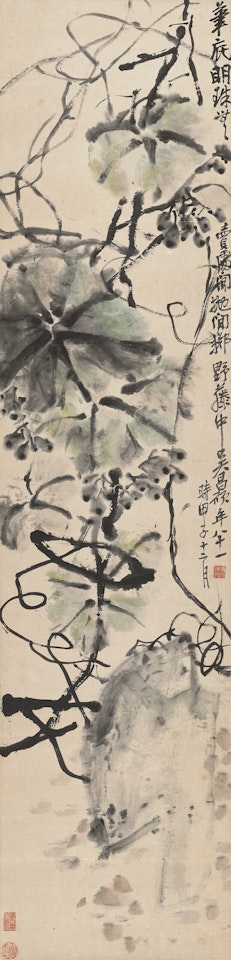 筆底明珠無
賣處閒拋閒擲野藤中吳昌碩年八十一
時甲子十二月